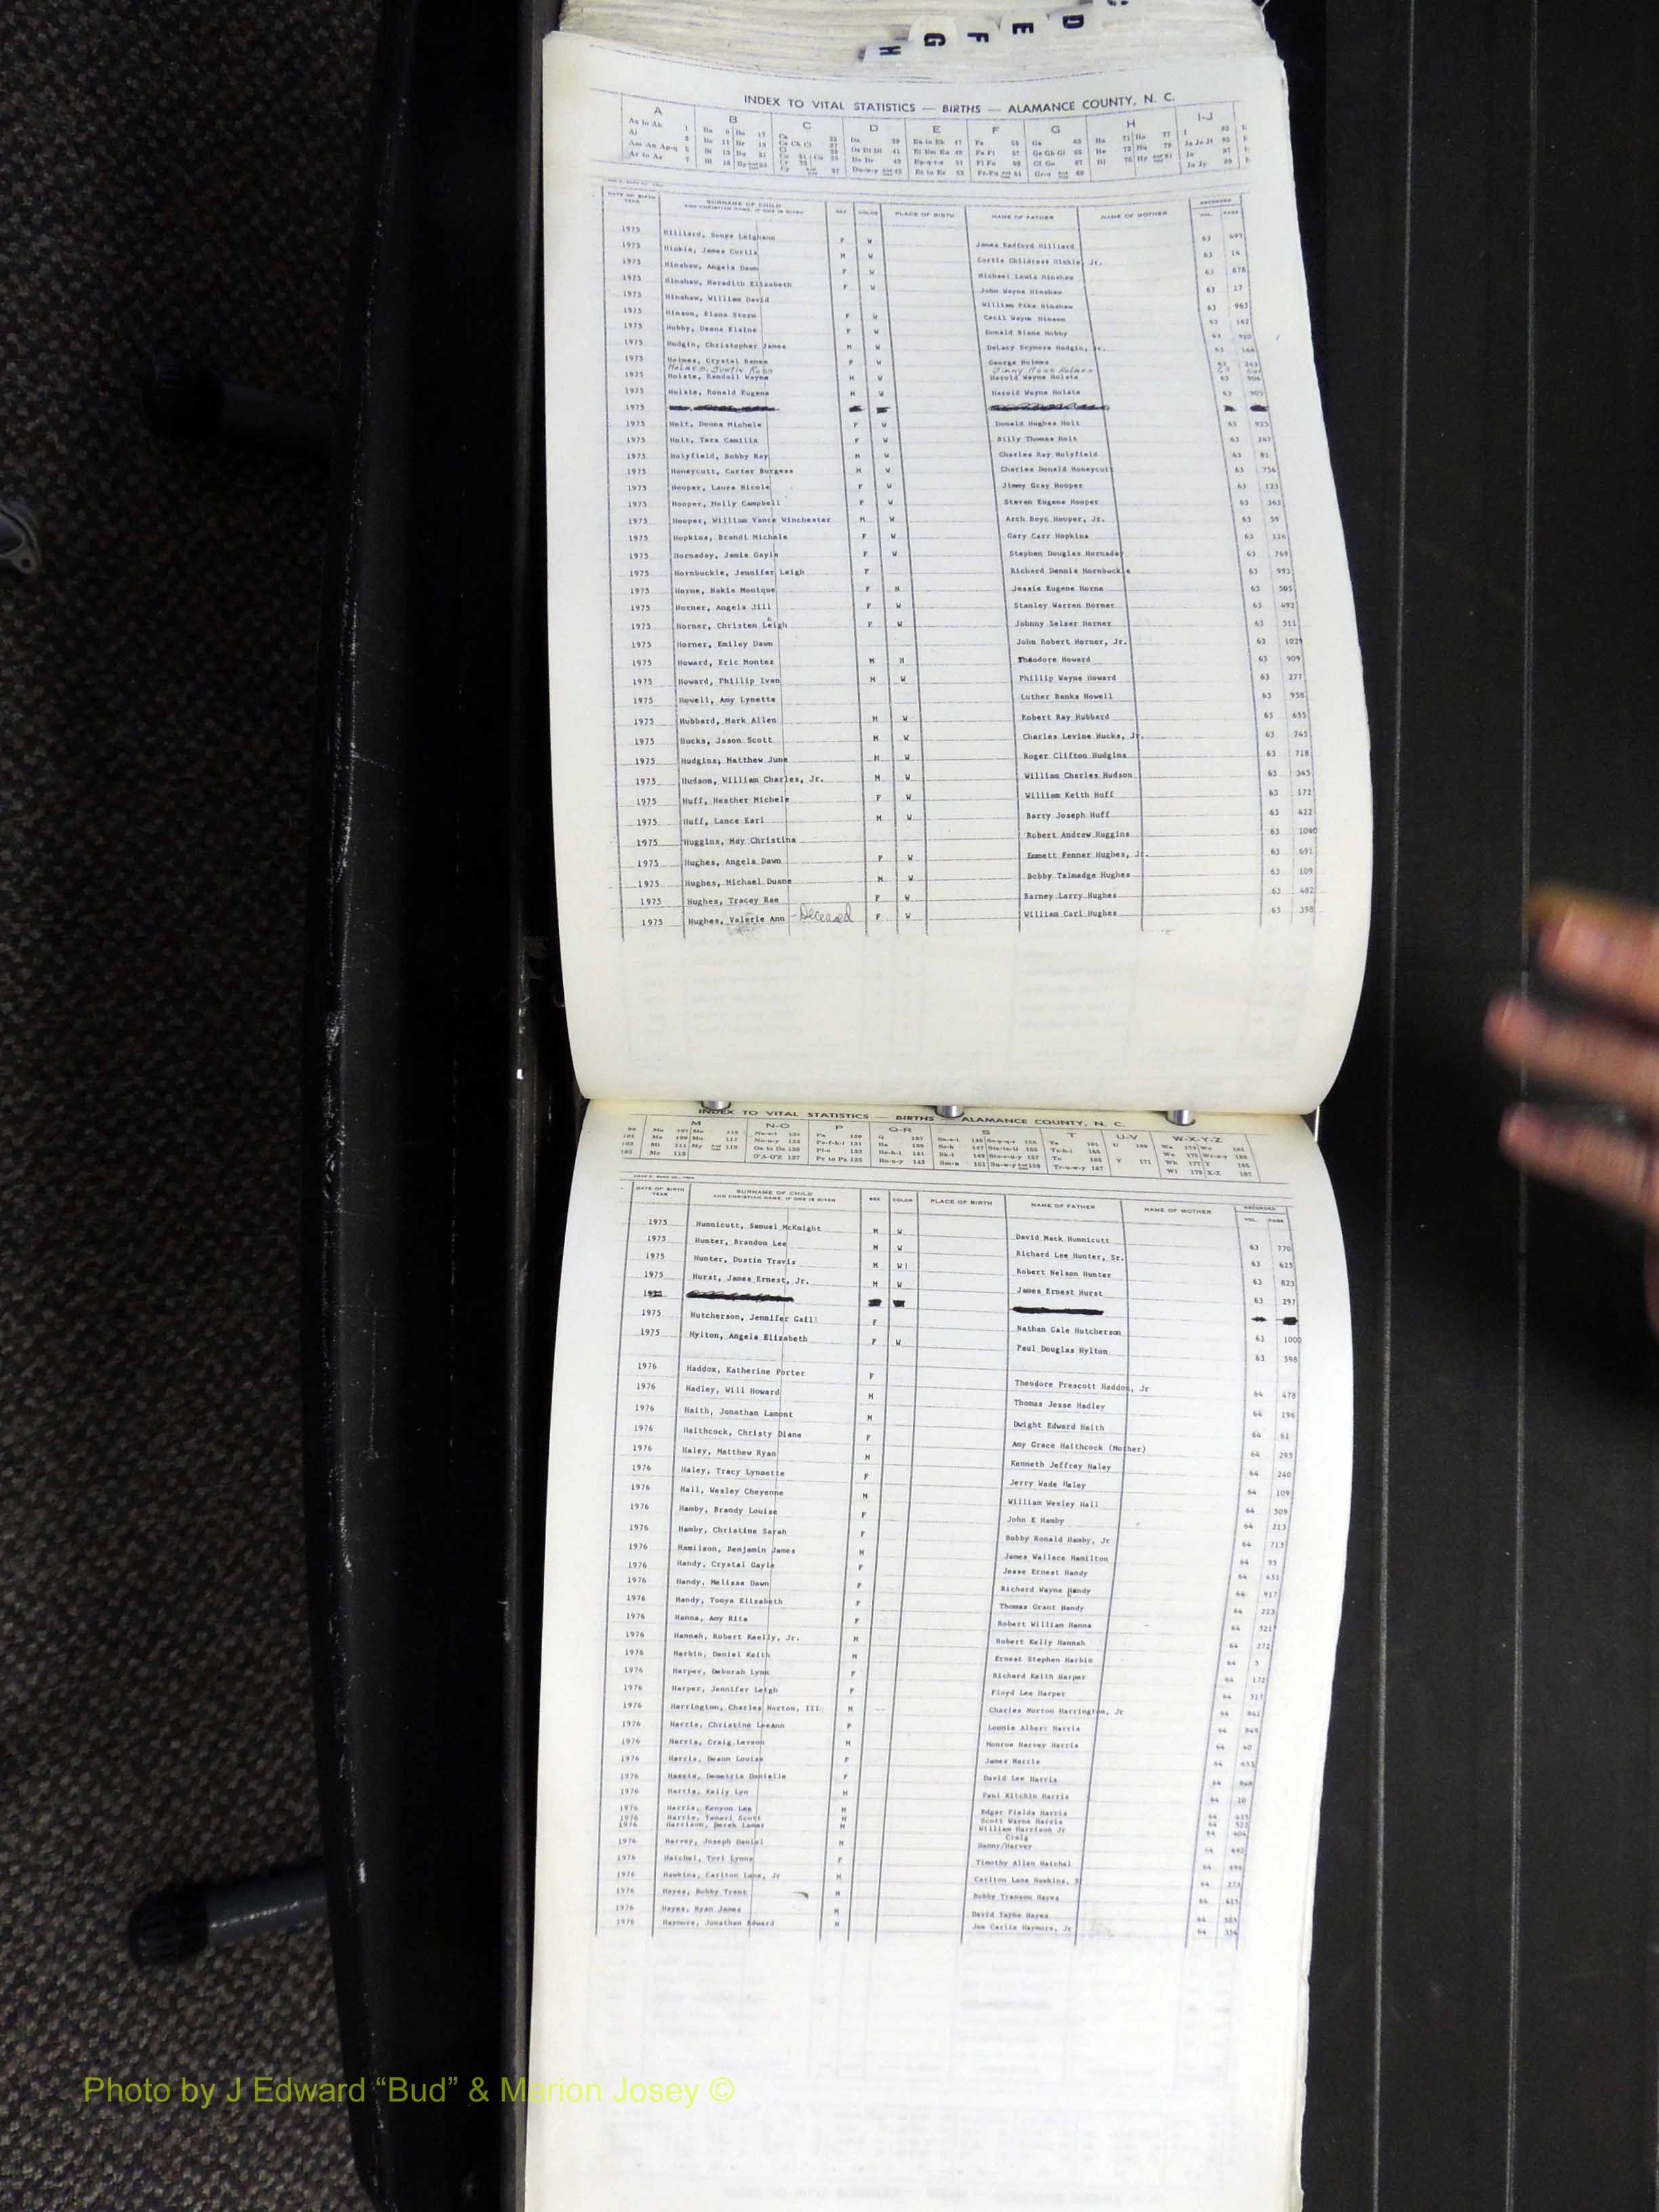 D
E
F
G
H
INDEX TO VITAL STATISTICS — BIRTHS — ALAMANCE COUNTY, N. C.
A B C D E F G H I-J
DATE OF BIRTH YEAR SURNAME OF CHILD AND CHRISTIAN NAME, IF ONE IS GIVEN SEX COLOR PLACE OF BIRTH NAME OF FATHER NAME OF MOTHER RECORDED VOL. PAGE
1975 Hilliard, Sonya Leighann F W James Radford Hilliard 63 697
1975 Hinkle, James Curtis M W Curtis Childress Hinkle, Jr. 63 16
1975 Hinshaw, Angela Dawn F W Michael Lewis Hinshaw 63 878
1975 Hinshaw, Meredith Elizabeth F W John Wayne Hinshaw 63 17
1975 Hinshaw, William David William Pike Hinshaw 63 963
1975 Hinson, Kiana Storm F W Cecil Wayne Hinson 63 162
1975 Hobby, Deana Elaine F W Donald Blane Hobby 63 920
1975 Hodgin, Christopher James M W DeLacy Seymore Hodgin, Jr. 63 166
1975 Holmes, Crystal Renee F W George Holmes 63 243
Holmes, Justin Ross Jimmy Ross Holmes
1975 Holste, Randall Wayne M W Harold Wayne Holste 63 906
1975 Holste, Ronald Eugene M W Harold Wayne Holste 63 905
1975
1975 Holt, Donna Michele F W Donald Hughes Holt 63 935
1975 Holt, Tara Camilla F W Billy Thomas Holt 63 247
1975 Holyfield, Bobby Ray M W Charles Ray Holyfield 63 81
1975 Honeycutt, Carter Burgess M W Charles Donald Honeycutt 63 756
1975 Hooper, Laura Nicole F W Jimmy Gray Hooper 63 123
1975 Hooper, Holly Campbell F W Steven Eugene Hooper 63 363
1975 Hooper, William Vance Winchester M W Arch Boyc Hooper, Jr. 63 59
1975 Hopkins, Brandi Michele F W Gary Carr Hopkins 63 114
1975 Hornaday, Jamie Gayle F W Stephen Douglas Hornaday 63 769
1975 Hornbuckle, Jennifer Leigh F Richard Dennis Hornbuckle 63 993
1975 Horne, Nakia Monique F N Jessie Eugene Horne 63 505
1975 Horner, Angela Jill F W Stanley Warren Horner 63 492
1975 Horner, Christen Leigh F W Johnny Selser Horner 63 511
1975 Horner, Emiley Dawn John Robert Horner, Jr. 63 1029
1975 Howard, Eric Montez M N Theodore Howard 63 909
1975 Howard, Phillip Ivan M W Phillip Wayne Howard 63 277
1975 Howell, Amy Lynette Luther Banks Howell 63 958
1975 Hubbard, Mark Allen M W Robert Ray Hubbard 63 655
1975 Hucks, Jason Scott M W Charles Levine Hucks, Jr. 63 245
1975 Hudgins, Matthew June M W Roger Clifton Hudgins 63 718
1975 Hudson, William Charles, Jr. M W William Charles Hudson 63 345
1975 Huff, Heather Michele F W William Keith Huff 63 172
1975 Huff, Lance Earl M W Barry Joseph Huff 63 422
1975 Huggins, May Christina Robert Andrew Huggins 63 1040
1975 Hughes, Angela Dawn F W Emmett Fenner Hughes, Jr. 63 691
1975 Hughes, Michael Duane M W Bobby Talmadge Hughes 63 109
1975 Hughes, Tracey Rae F W Barney Larry Hughes 63 482
1975 Hughes, Valerie Ann - Deceased F W William Carl Hughes 63 398
INDEX TO VITAL STATISTICS — BIRTHS — ALAMANCE COUNTY, N. C.
M N-O P Q-R S T U-V W-X-Y-Z
DATE OF BIRTH YEAR SURNAME OF CHILD AND CHRISTIAN NAME, IF ONE IS GIVEN SEX COLOR PLACE OF BIRTH NAME OF FATHER NAME OF MOTHER RECORDED VOL. PAGE
1975 Hunnicutt, Samuel McKnight M W David Mack Hunnicutt 63 770
1975 Hunter, Brandon Lee M W Richard Lee Hunter, Sr. 63 625
1975 Hunter, Dustin Travis M W Robert Nelson Hunter 63 823
1975 Hurst, James Ernest, Jr. M W James Ernest Hurst 63 297
1975 Hutcherson, Jennifer Gail F Nathan Gale Hutcherson 63 1000
1975 Hylton, Angela Elizabeth F W Paul Douglas Hylton 63 598
1976 Haddox, Katherine Porter F Theodore Prescott Haddox, Jr 64 478
1976 Hadley, Will Howard M Thomas Jesse Hadley 64 196
1976 Haith, Jonathan Lamont M Dwight Edward Haith 64 61
1976 Haithcock, Christy Diane F Amy Grace Haithcock (Mother) 64 295
1976 Haley, Matthew Ryan M Kenneth Jeffrey Haley 64 240
1976 Haley, Tracy Lynnette F Jerry Wade Haley 64 109
1976 Hall, Wesley Cheyenne M William Wesley Hall 64 509
1976 Hamby, Brandy Louise F John E Hamby 64 213
1976 Hamby, Christine Sarah F Bobby Ronald Hamby, Jr 64 713
1976 Hamilson, Benjamin James M James Wallace Hamilton 64 95
1976 Handy, Crystal Gayle F Jesse Ernest Handy 64 651
1976 Handy, Melissa Dawn F Richard Wayne Handy 64 917
1976 Handy, Tonya Elizabeth F Thomas Grant Handy 64 223
1976 Hanna, Amy Rita F Robert William Hanna 64 521
1976 Hannah, Robert Keelly, Jr. M Robert Kelly Hannah 64 272
1976 Harbin, Daniel Keith M Ernest Stephen Harbin 64 5
1976 Harper, Deborah Lynn F Richard Keith Harper 64 172
1976 Harper, Jennifer Leigh F Floyd Lee Harper 64 517
1976 Harrington, Charles Norton, III M Charles Norton Harrington, Jr 64 841
1976 Harris, Christine LeeAnn F Lonnie Albert Harris 64 849
1976 Harris, Craig Levson M Monroe Harvey Harris 64 40
1976 Harris, Deann Louise F James Harris 64 453
1976 Harris, Demetria Danielle F David Lee Harris 64 968
1976 Harris, Kelly Lyn M Paul Kitchin Harris 64 10
1976 Harris, Kenyon Lee M Edgar Fields Harris 64 435
1976 Harris, Tamari Scott M Scott Wayne Harris 64 522
1976 Harrison, Derek Lamar M William Harrison Jr 64 404
Craig
1976 Harvey, Joseph Daniel M Danny/Harvey 64 692
1976 Hatchel, Tori Lynne F Timothy Allen Hatchel 64 498
1976 Hawkins, Carlton Lane, Jr M Carlton Lane Hawkins, S 64 273
1976 Hayes, Bobby Trent M Bobby Transou Hayes 64 615
1976 Hayes, Ryan James M David Tayne Hayes 64 585
1976 Haymore, Jonathan Edward M Joe Carlie Haymore, Jr 64 334
Photo by J Edward “Bud” & Marion Josey ©